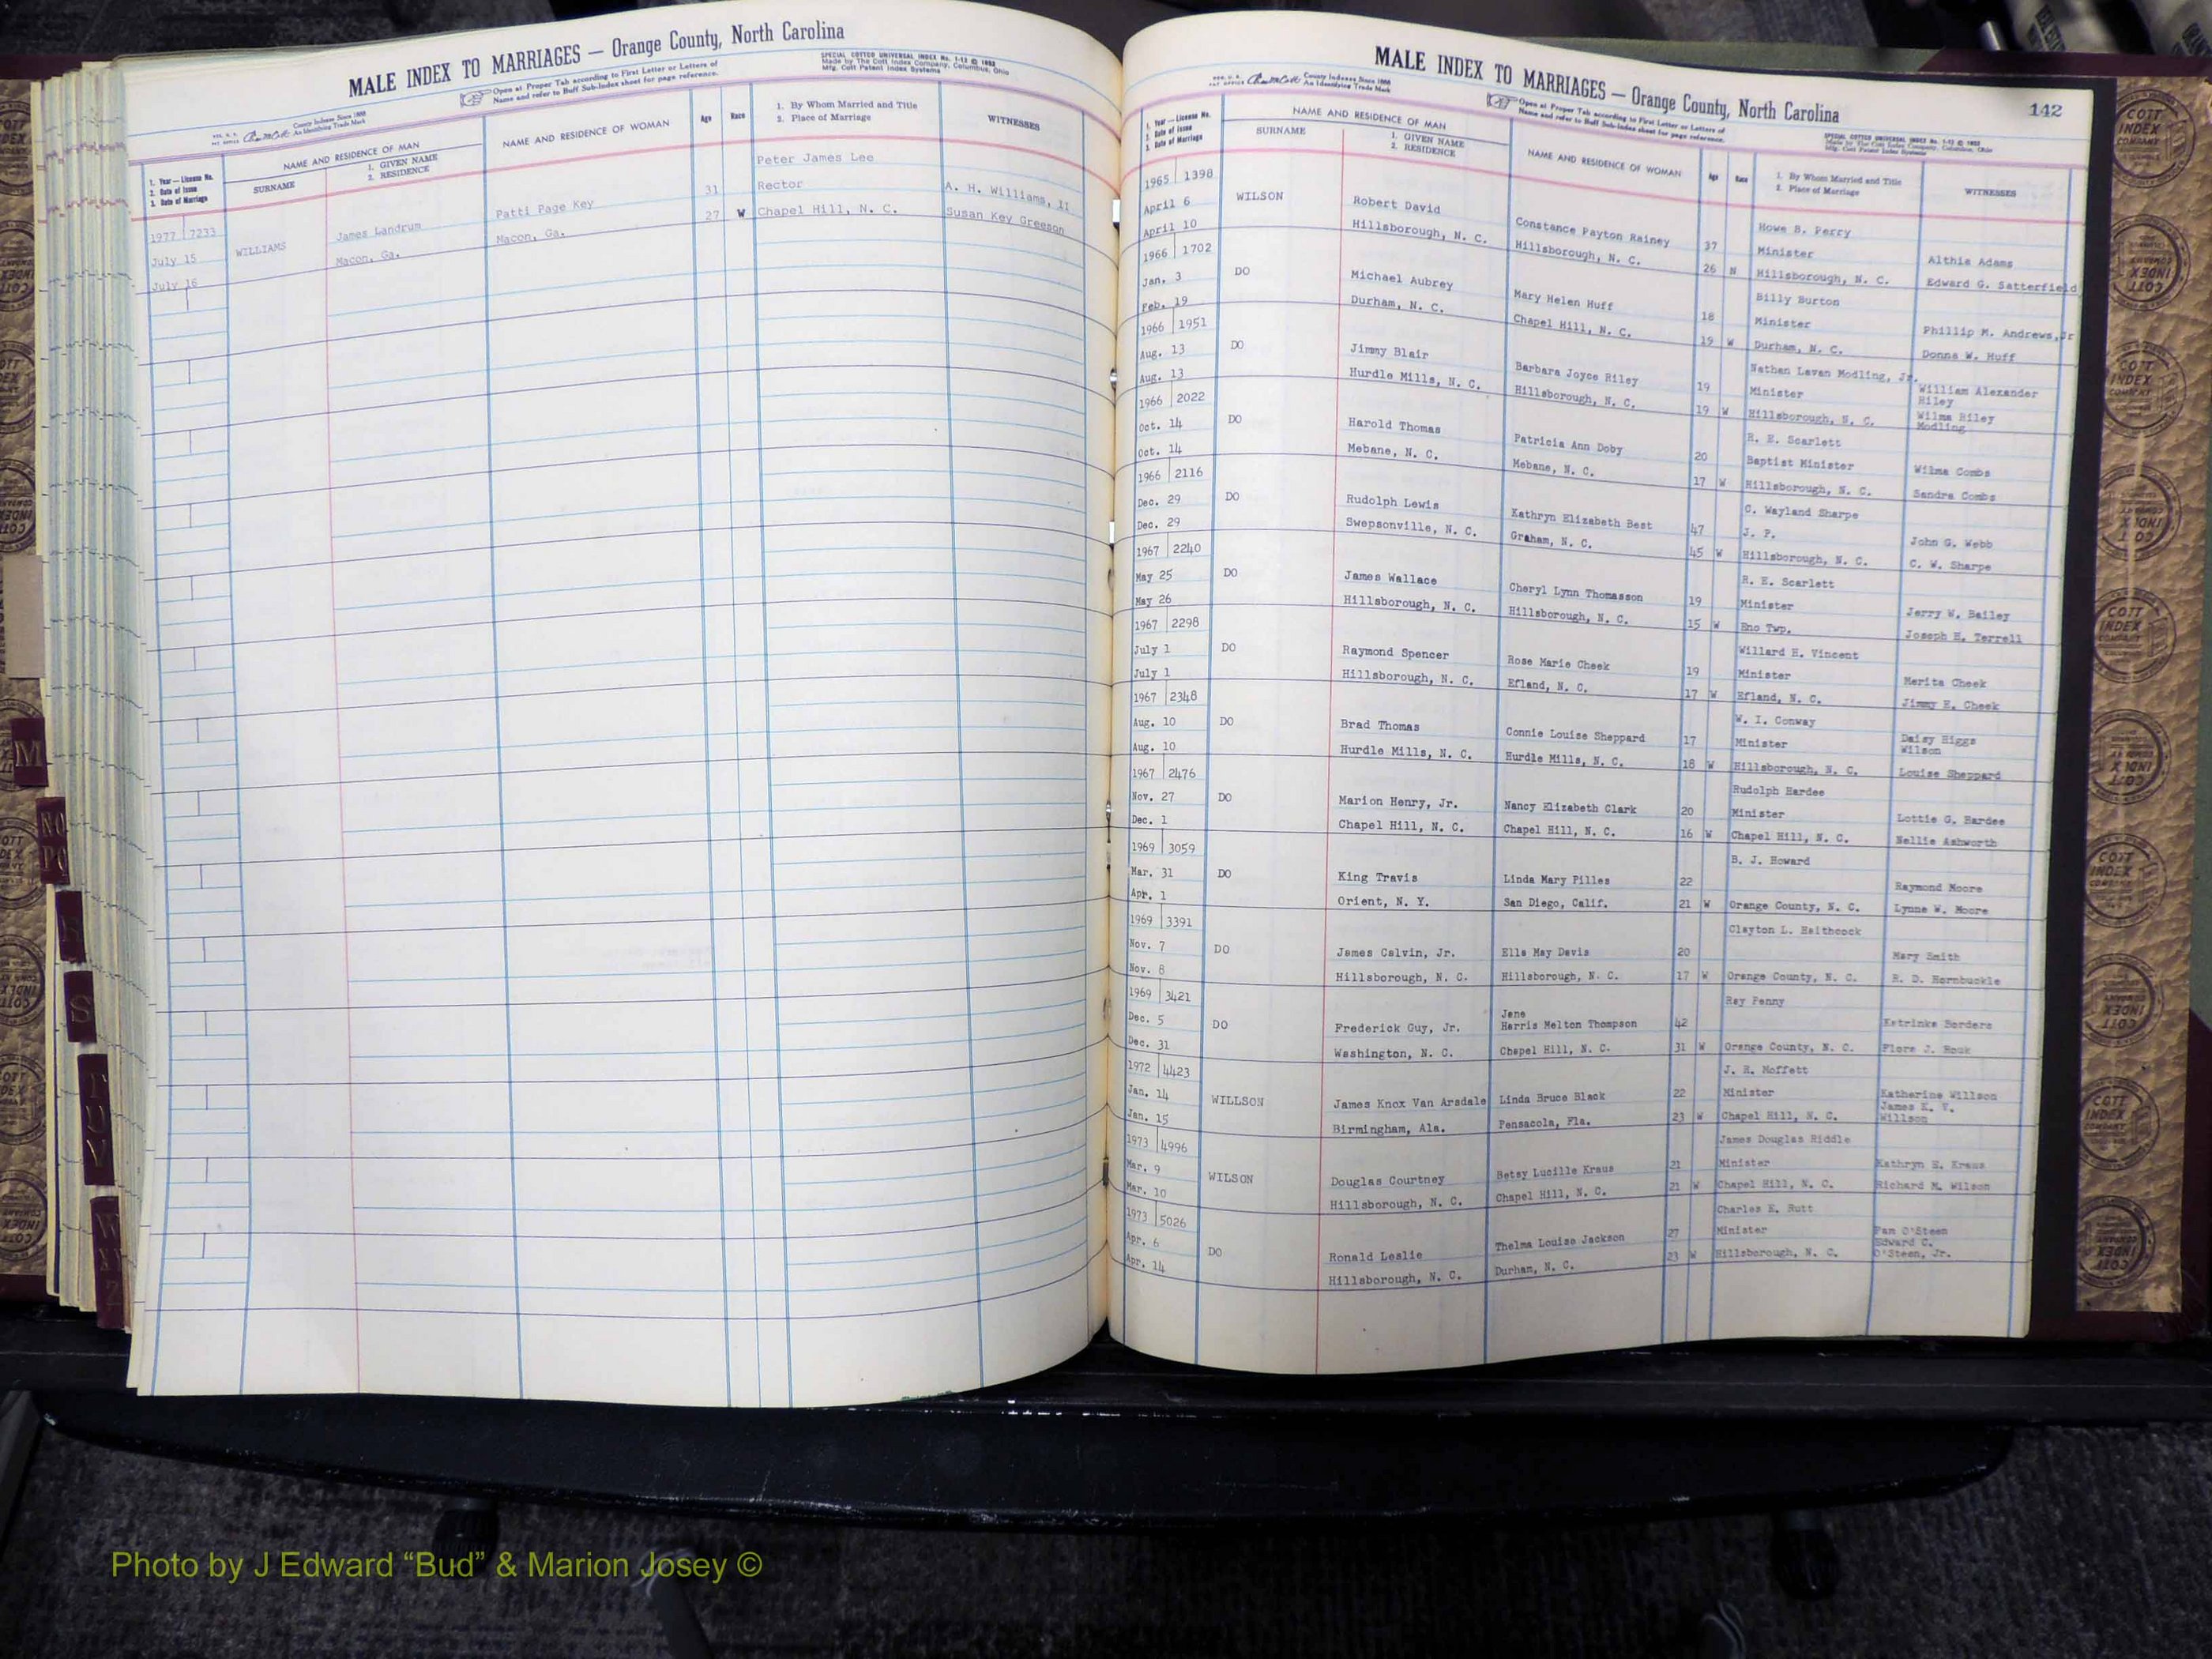 MALE INDEX TO MARRIAGES — Orange County, North Carolina
Open at Proper Tab according to First Letter or Letters of
Name and refer to Buff Sub-Index sheet for page reference.
SPECIAL COTTCO UNIVERSAL INDEX No. 1-12 © 1952
Made by The Cott Index Company, Columbus, Ohio
Mfg. Cott Patent Index Systems
County Indexes Since 1888
An Identifying Trade Mark
1. Year — License No.
2. Date of Issue
3. Date of Marriage
NAME AND RESIDENCE OF MAN
SURNAME
1. GIVEN NAME
2. RESIDENCE
NAME AND RESIDENCE OF WOMAN
Age
Race
1. By Whom Married and Title
2. Place of Marriage
WITNESSES
1977 7233
July 15
July 16
WILLIAMS
James Landrum
Macon, Ga.
Patti Page Key
Macon, Ga.
31
27 W
Peter James Lee
Rector
Chapel Hill, N. C.
A. H. Williams, II
Susan Key Greeson
MALE INDEX TO MARRIAGES — Orange County, North Carolina
142
County Indexes Since 1888
An Identifying Trade Mark
Open at Proper Tab according to First Letter or Letters of
Name and refer to Buff Sub-Index sheet for page reference.
1. Year — License No.
2. Date of Issue
3. Date of Marriage
NAME AND RESIDENCE OF MAN
SURNAME
1. GIVEN NAME
2. RESIDENCE
NAME AND RESIDENCE OF WOMAN
Age
Race
1. By Whom Married and Title
2. Place of Marriage
WITNESSES
1965 1398
April 6
April 10
WILSON
Robert David
Hillsborough, N. C.
Constance Payton Rainey
Hillsborough, N. C.
37
26 N
Howe B. Perry
Minister
Hillsborough, N. C.
Althie Adams
Edward G. Satterfield
1966 1702
Jan. 3
Feb. 19
DO
Michael Aubrey
Durham, N. C.
Mary Helen Huff
Chapel Hill, N. C.
18
19 W
Billy Burton
Minister
Durham, N. C.
Phillip M. Andrews, Jr
Donna W. Huff
1966 1951
Aug. 13
Aug. 13
DO
Jimmy Blair
Hurdle Mills, N. C.
Barbara Joyce Riley
Hillsborough, N. C.
19
19 W
Nathan Lavan Modling, Jr.
Minister
Hillsborough, N. C.
William Alexander
Riley
Wilma Riley
Modling
1966 2022
Oct. 14
Oct. 14
DO
Harold Thomas
Mebane, N. C.
Patricia Ann Doby
Mebane, N. C.
20
17 W
R. E. Scarlett
Baptist Minister
Hillsborough, N. C.
Wilma Combs
Sandra Combs
1966 2116
Dec. 29
Dec. 29
DO
Rudolph Lewis
Swepsonville, N. C.
Kathryn Elizabeth Best
Graham, N. C.
47
45 W
C. Wayland Sharpe
J. P.
Hillsborough, N. C.
John G. Webb
C. W. Sharpe
1967 2240
May 25
May 26
DO
James Wallace
Hillsborough, N. C.
Cheryl Lynn Thomasson
Hillsborough, N. C.
19
15 W
R. E. Scarlett
Minister
Eno Twp.
Jerry W. Bailey
Joseph H. Terrell
1967 2298
July 1
July 1
DO
Raymond Spencer
Hillsborough, N. C.
Rose Marie Cheek
Efland, N. C.
19
17 W
Willard H. Vincent
Minister
Efland, N. C.
Merita Cheek
Jimmy E. Cheek
1967 2348
Aug. 10
Aug. 10
DO
Brad Thomas
Hurdle Mills, N. C.
Connie Louise Sheppard
Hurdle Mills, N. C.
17
18 W
W. I. Conway
Minister
Hillsborough, N. C.
Daisy Higgs
Wilson
Louise Sheppard
1967 2476
Nov. 27
Dec. 1
DO
Marion Henry, Jr.
Chapel Hill, N. C.
Nancy Elizabeth Clark
Chapel Hill, N. C.
20
16 W
Rudolph Hardee
Minister
Chapel Hill, N. C.
Lottie G. Hardee
Nellie Ashworth
1969 3059
Mar. 31
Apr. 1
DO
King Travis
Orient, N. Y.
Linda Mary Pilles
San Diego, Calif.
22
21 W
B. J. Howard
Orange County, N. C.
Raymond Moore
Lynne W. Moore
1969 3391
Nov. 7
Nov. 8
DO
James Calvin, Jr.
Hillsborough, N. C.
Ella May Davis
Hillsborough, N. C.
20
17 W
Clayton L. Haithcock
Orange County, N. C.
Mary Smith
R. D. Hornbuckle
1969 3421
Dec. 5
Dec. 31
DO
Frederick Guy, Jr.
Washington, N. C.
Jene
Harris Melton Thompson
Chapel Hill, N. C.
42
31 W
Ray Penny
Orange County, N. C.
Katrinka Borders
Flora J. Houk
1972 4423
Jan. 14
Jan. 15
WILLSON
James Knox Van Arsdale
Birmingham, Ala.
Linda Bruce Black
Pensacola, Fla.
22
23 W
J. R. Moffett
Minister
Chapel Hill, N. C.
Katherine Willson
James K. V.
Willson
1973 4996
Mar. 9
Mar. 10
WILSON
Douglas Courtney
Hillsborough, N. C.
Betsy Lucille Kraus
Chapel Hill, N. C.
21
21 W
James Douglas Riddle
Minister
Chapel Hill, N. C.
Kathryn E. Kraus
Richard M. Wilson
1973 5026
Apr. 6
Apr. 14
DO
Ronald Leslie
Hillsborough, N. C.
Thelma Louise Jackson
Durham, N. C.
27
23 W
Charles E. Rutt
Minister
Hillsborough, N. C.
Pam O'Steen
Edward C.
O'Steen, Jr.
M
NO
PQ
R
S
T
UV
W
XY
Z
COTT
INDEX
COMPANY
Photo by J Edward “Bud” & Marion Josey ©